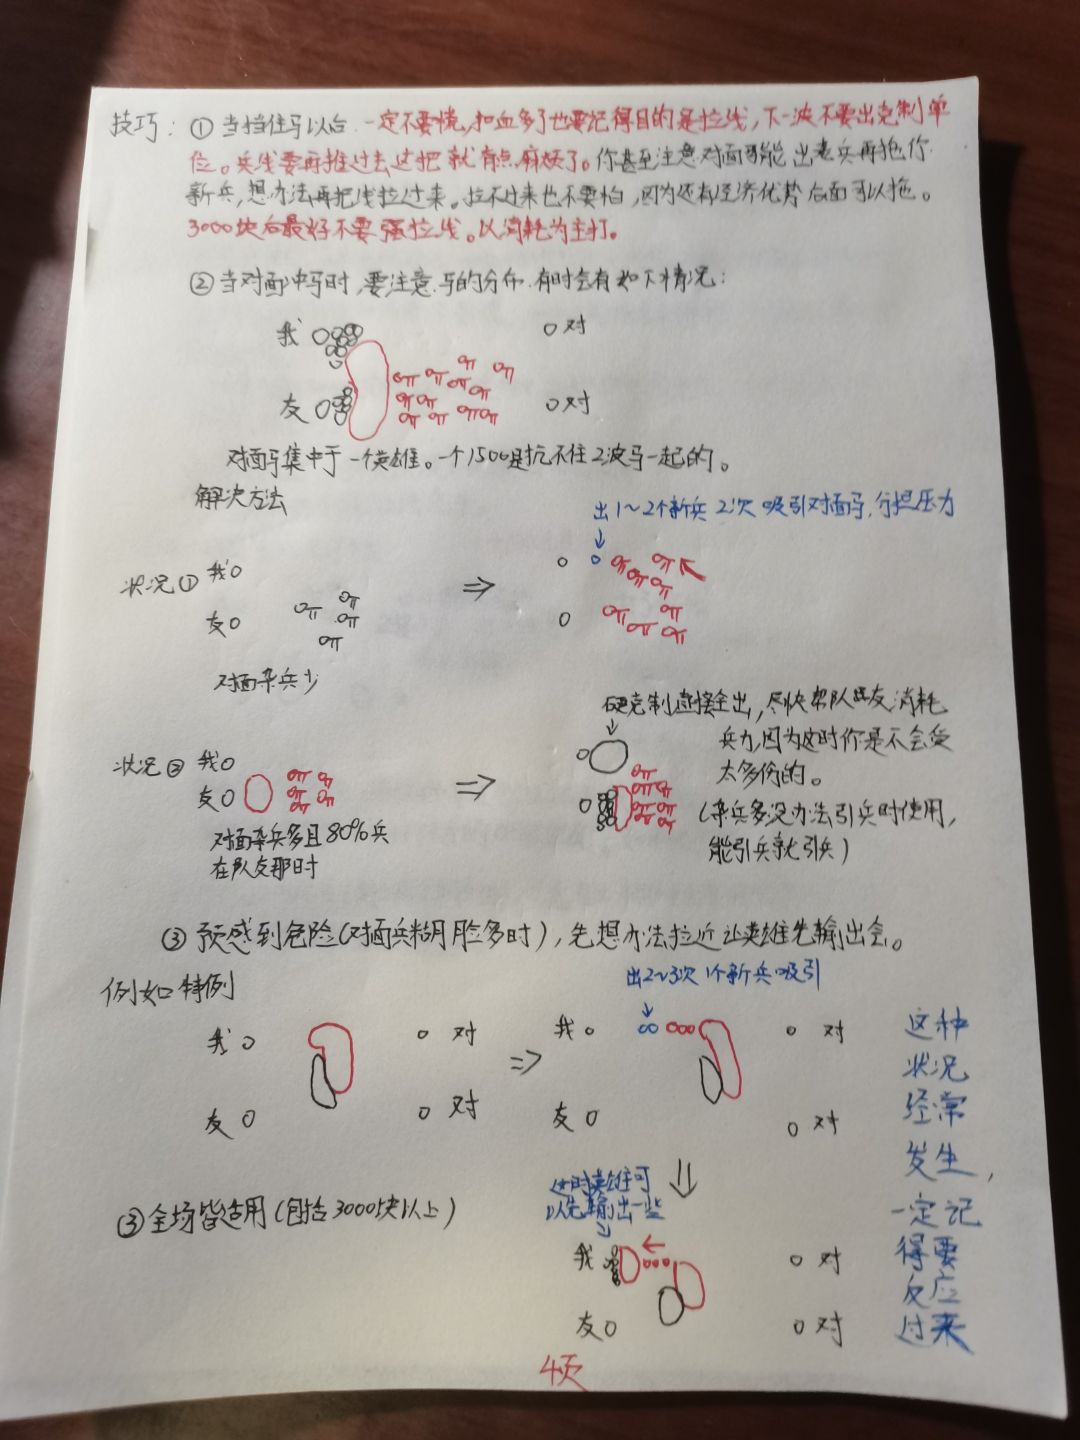 技巧：①当挡住马以后.一定不要慌，扣血多了也要记得目的是拉线，下一波不要出克制单
位。兵线要再推过去这把就有点麻烦了。你甚至注意对面可能出老兵再拖你
新兵，想办法再把线拉过来。拉不过来也不要怕，因为还有经济优势后面可以拖。
3000块后最好不要强拉线。以消耗为主打。
②当对面冲马时，要注意马的分布.有时会有如下情况：
我 对
友 对
对面马集中于一个英雄。一个1500是抗不住2波马一起的。
解决方法
出1～2个新兵 2次 吸引对面马，分担压力
状况① 我
友
对面杂兵少
状况② 我
友
对面杂兵多且80%兵
在队友那时
硬克制直接全出，尽快帮队友消耗
兵力，因为这时你是不会受
太多伤的。
（杂兵多没办法引兵时使用，
能引兵就引兵）
③预感到危险（对面兵糊脸多时），先想办法拉近让英雄先输出会。
例如特例
出2~3次 1个新兵吸引
我 对
友 对
我 对
友 对
这种
状况
经常
发生，
一定记
得要
反应
过来
③全场皆适用（包括3000块以上）
这时英雄可
以先输出一些
我 对
友 对
4页